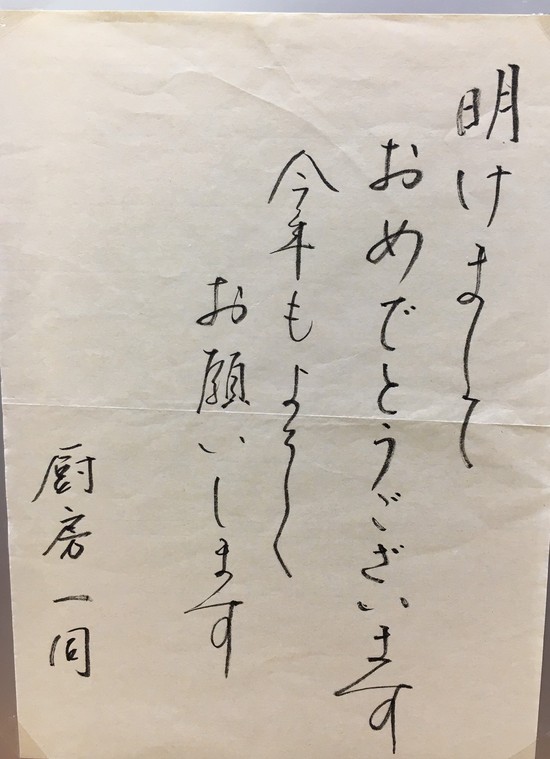 明けまして
おめでとうございます
今年もよろしく
お願いします
厨房一同